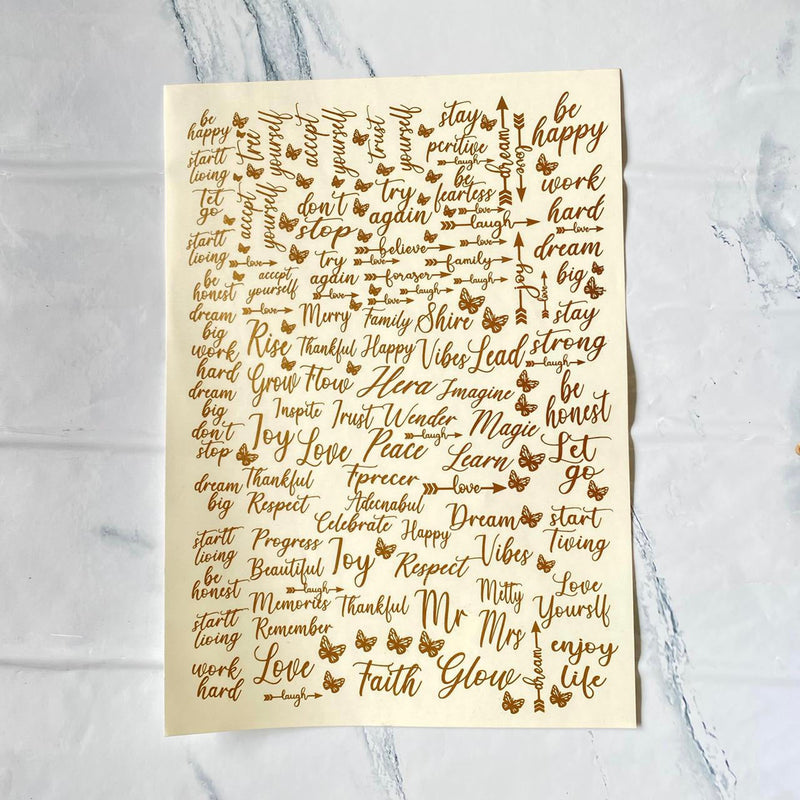 be
happy
tree
yourself
accept
yourself
trust
yourself
stay
peritive
laugh
weorp
love
be
happy
startl
lioing
accept
yourself
don't
stop
try
again
be
fearless
love
laugh
work
hard
love
let
go
startl
lioing
love
believe
love
love
family
dream
big
try
again
foraser
laugh
joy
love
be
honest
acccpt
yourself
love
love
love
dream
big
Merry
Family
Shire
stay
strong
laugh
work
hard
Rise
Thankful
Happy
Vibes
Lead
dream
big
Grow
Flow
Hera
Imagine
be
honest
don't
stop
Inspite
Trust
Wender
Magie
laugh
Joy
Love
Peace
Learn
Let
go
dream
big
Thankful
Fprecer
love
Respect
Adecnabul
Celebrate
Happy
Dream
start
Tiving
startl
lioing
Progress
Joy
Respect
Vibes
be
honest
Beautiful
laugh
Memories
Thankful
Mr
Mitty
Mrs
Love
Yourslf
startl
lioing
Remember
work
hard
Love
laugh
Faith
Glow
dream
enjoy
life